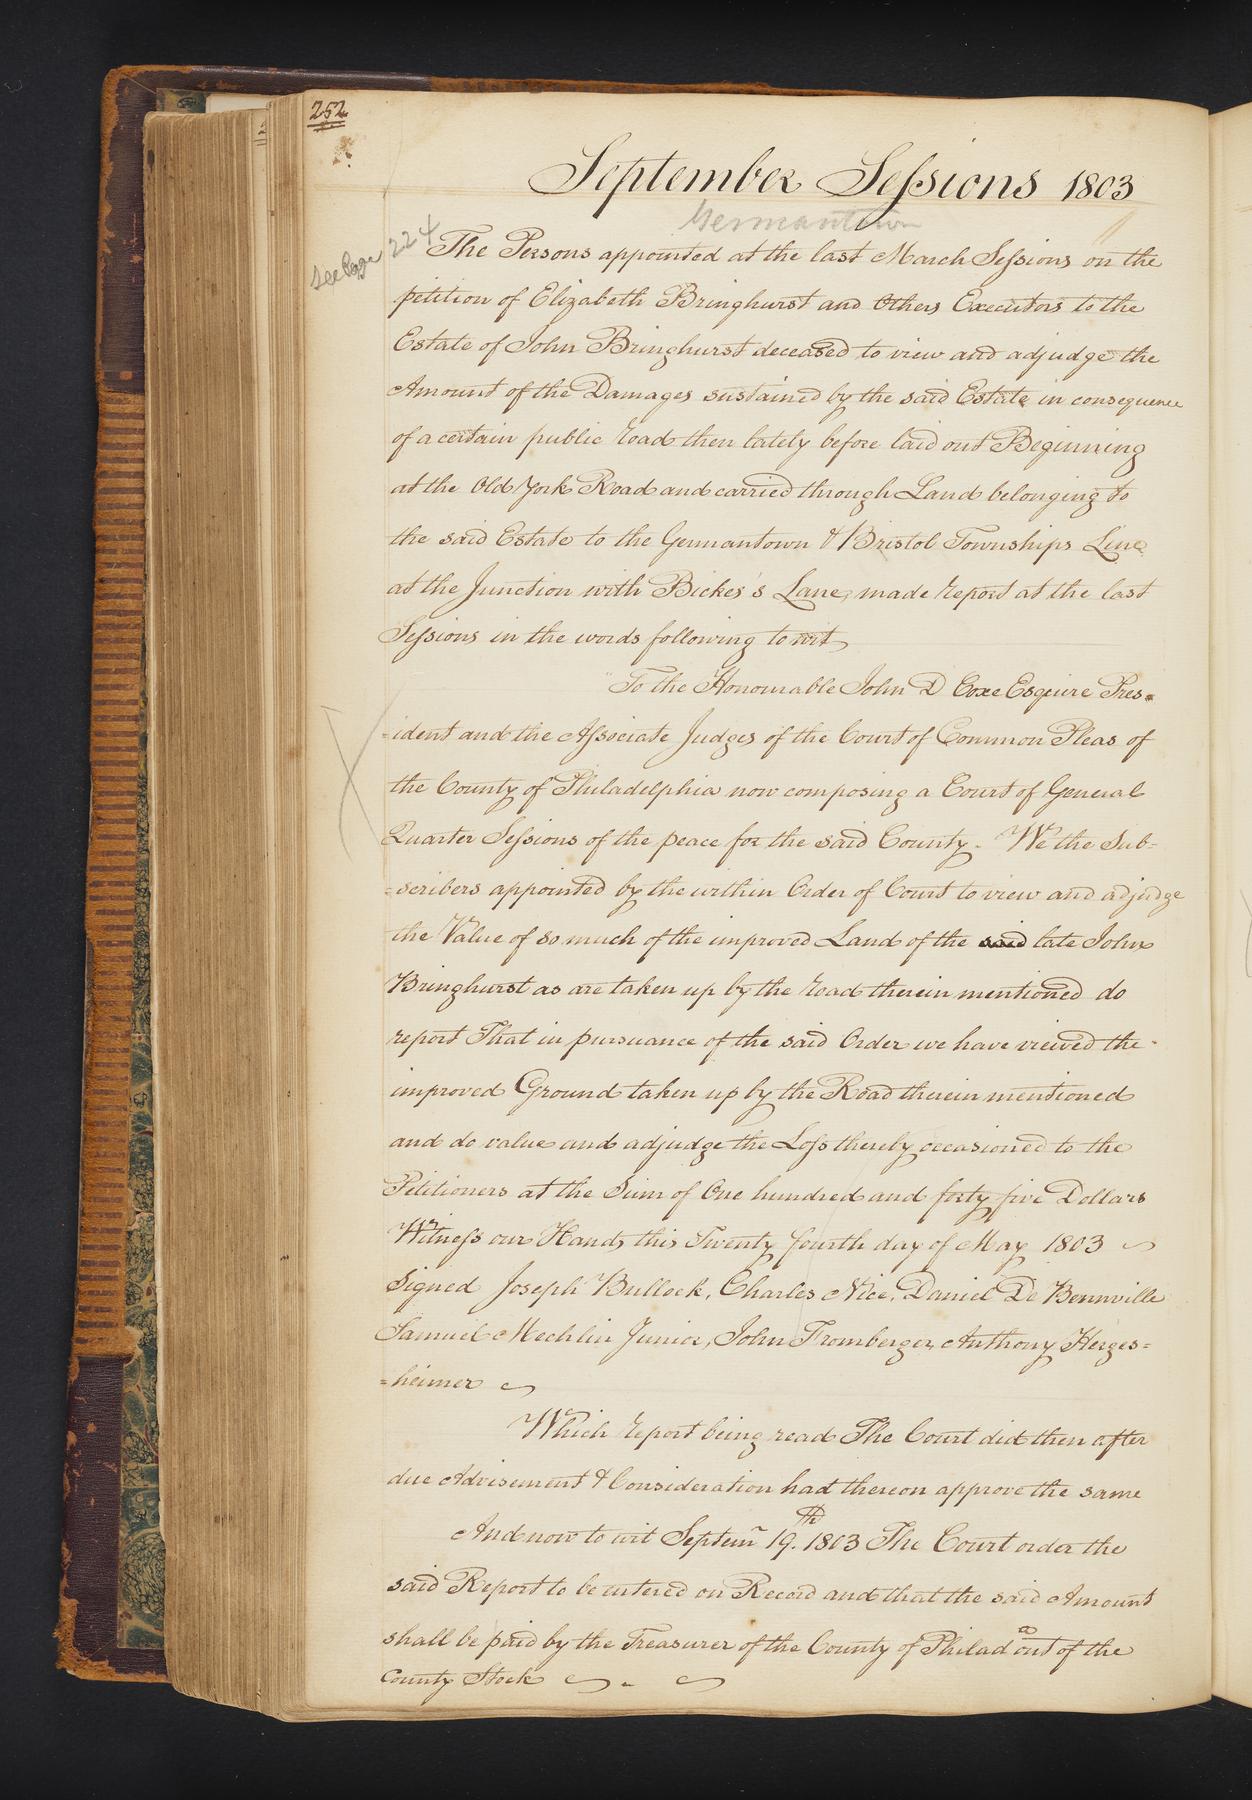 252
September Sessions 1803
Germantown
See Page 224
The Persons appointed at the last March Sessions on the
petition of Elizabeth Bringhurst and Others Executors to the
Estate of John Bringhurst deceased to view and adjudge the
Amount of the Damages sustained by the said Estate in consequence
of a certain public road then lately before laid out Beginning
at the Old York Road and carried through Land belonging to
the said Estate to the Germantown & Bristol Townships Line
at the Junction with Bickes's Lane, made report at the last
Sessions in the words following to wit
To the Honourable John D Coxe Esquire Pres-
=ident and the Associate Judges of the Court of Common Pleas of
the County of Philadelphia now composing a Court of General
Quarter Sessions of the peace for the said County. We the Sub=
=scribers appointed by the within Order of Court to view and adjudge
the Value of so much of the improved Land of the said late John
Bringhurst as are taken up by the road therein mentioned do
report That in pursuance of the said Order we have viewed the
improved Ground taken up by the Road therein mentioned
and do value and adjudge the Loss thereby occasioned to the
Petitioners at the Sum of One hundred and forty five Dollars
Witness our Hands this Twenty fourth day of May 1803
Signed Joseph Bullock, Charles Nice, Daniel De Bennville
Samuel Mechlin Junior, John Fromberger, Anthony Herges=
=heimer
Which report being read The Court did then after
due Advisement & Consideration had thereon approve the same
And now to wit Septemr 19th. 1803 The Court order the
said Report to be entered on Record and that the said Amount
shall be paid by the Treasurer of the County of Philada out of the
County Stock